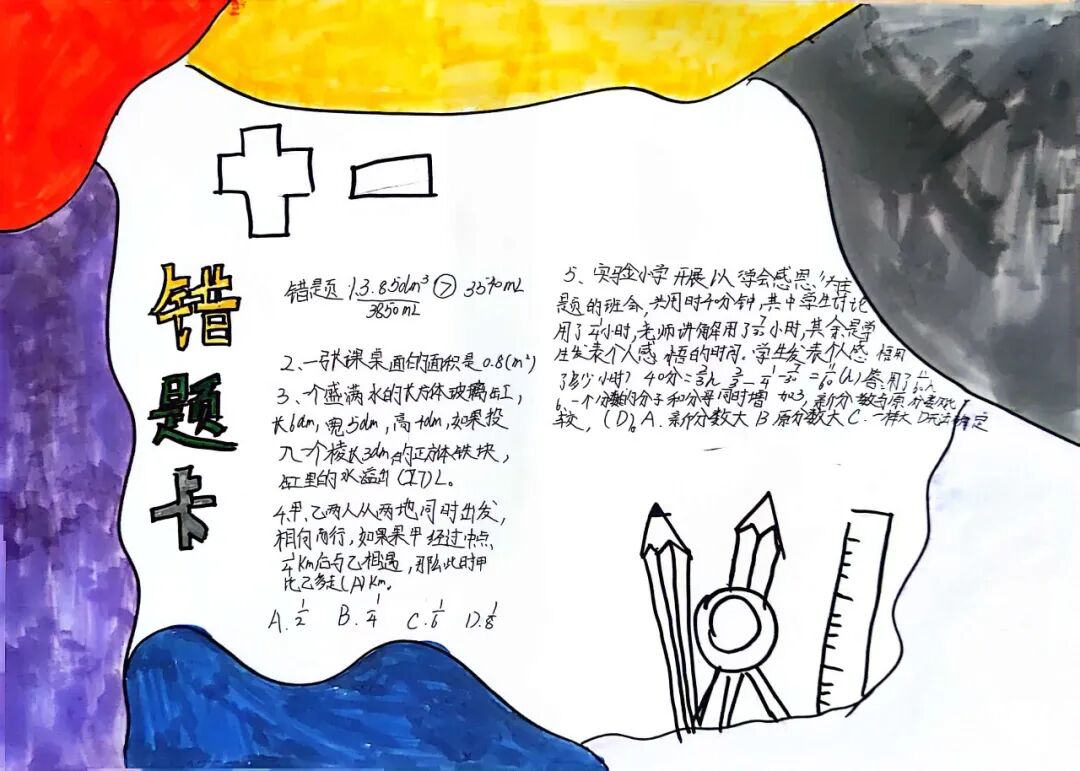 错题卡
错题 1、3.85dm³ > 3590mL
3850mL
2、一张课桌面的面积是0.8(m²)
3、一个盛满水的长方体玻璃缸,
长6dm,宽5dm,高4dm,如果投
入一个棱长3dm的正方体铁块,
缸里的水溢出(27)L。
4、甲、乙两人从两地同时出发,
相向而行,如果甲经过中点
1/4 Km后与乙相遇,那么此时甲
比乙多走(A)Km。
A. 1/2 B. 1/4 C. 1/6 D. 1/8
5、实验小学开展以“学会感恩”为
题的班会,共用时40分钟,其中学生讨论
用了1/4小时,老师讲解用了 小时,其余是学
生发表个人感悟的时间。学生发表个人感悟用
了多少小时? 40分=2/3h 答:用了
6、一个分数的分子和分母同时增加3,新分数与原分数比
较,(D)。A.新分数大 B 原分数大 C.一样大 D无法确定